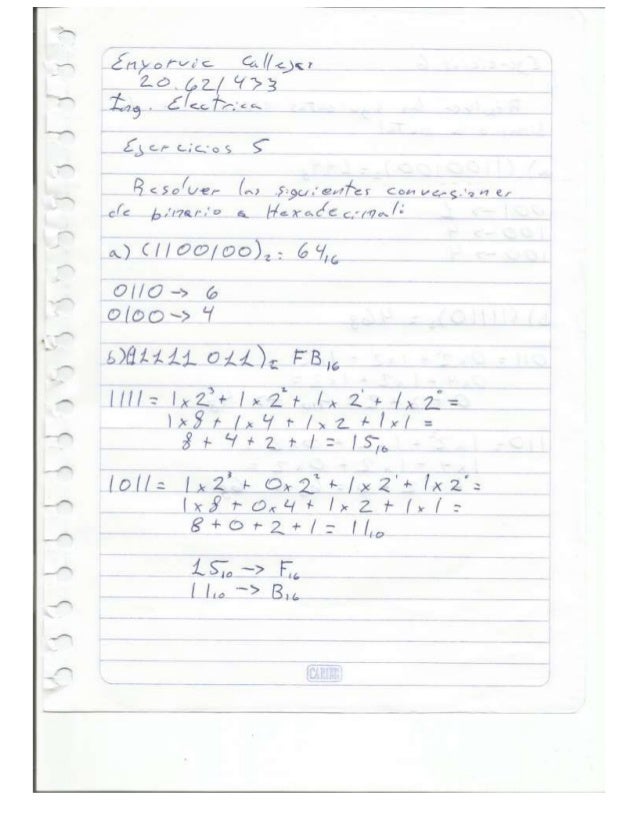 Enyorvic Callejas
20.621433
Ing. Electrica
Ejercicios 5
Resolver las siguientes conversiones
de binario a Hexadecimal:
a) (1100100)₂ = 64₁₆
0110 -> 6
0100 -> 4
b) (11111011)₂ = FB₁₆
1111 = 1x2³ + 1x2² + 1x2¹ + 1x2⁰ =
1x8 + 1x4 + 1x2 + 1x1 =
8 + 4 + 2 + 1 = 15₁₀
1011 = 1x2³ + 0x2² + 1x2¹ + 1x2⁰ =
1x8 + 0x4 + 1x2 + 1x1 =
8 + 0 + 2 + 1 = 11₁₀
15₁₀ -> F₁₆
11₁₀ -> B₁₆
CARIBE